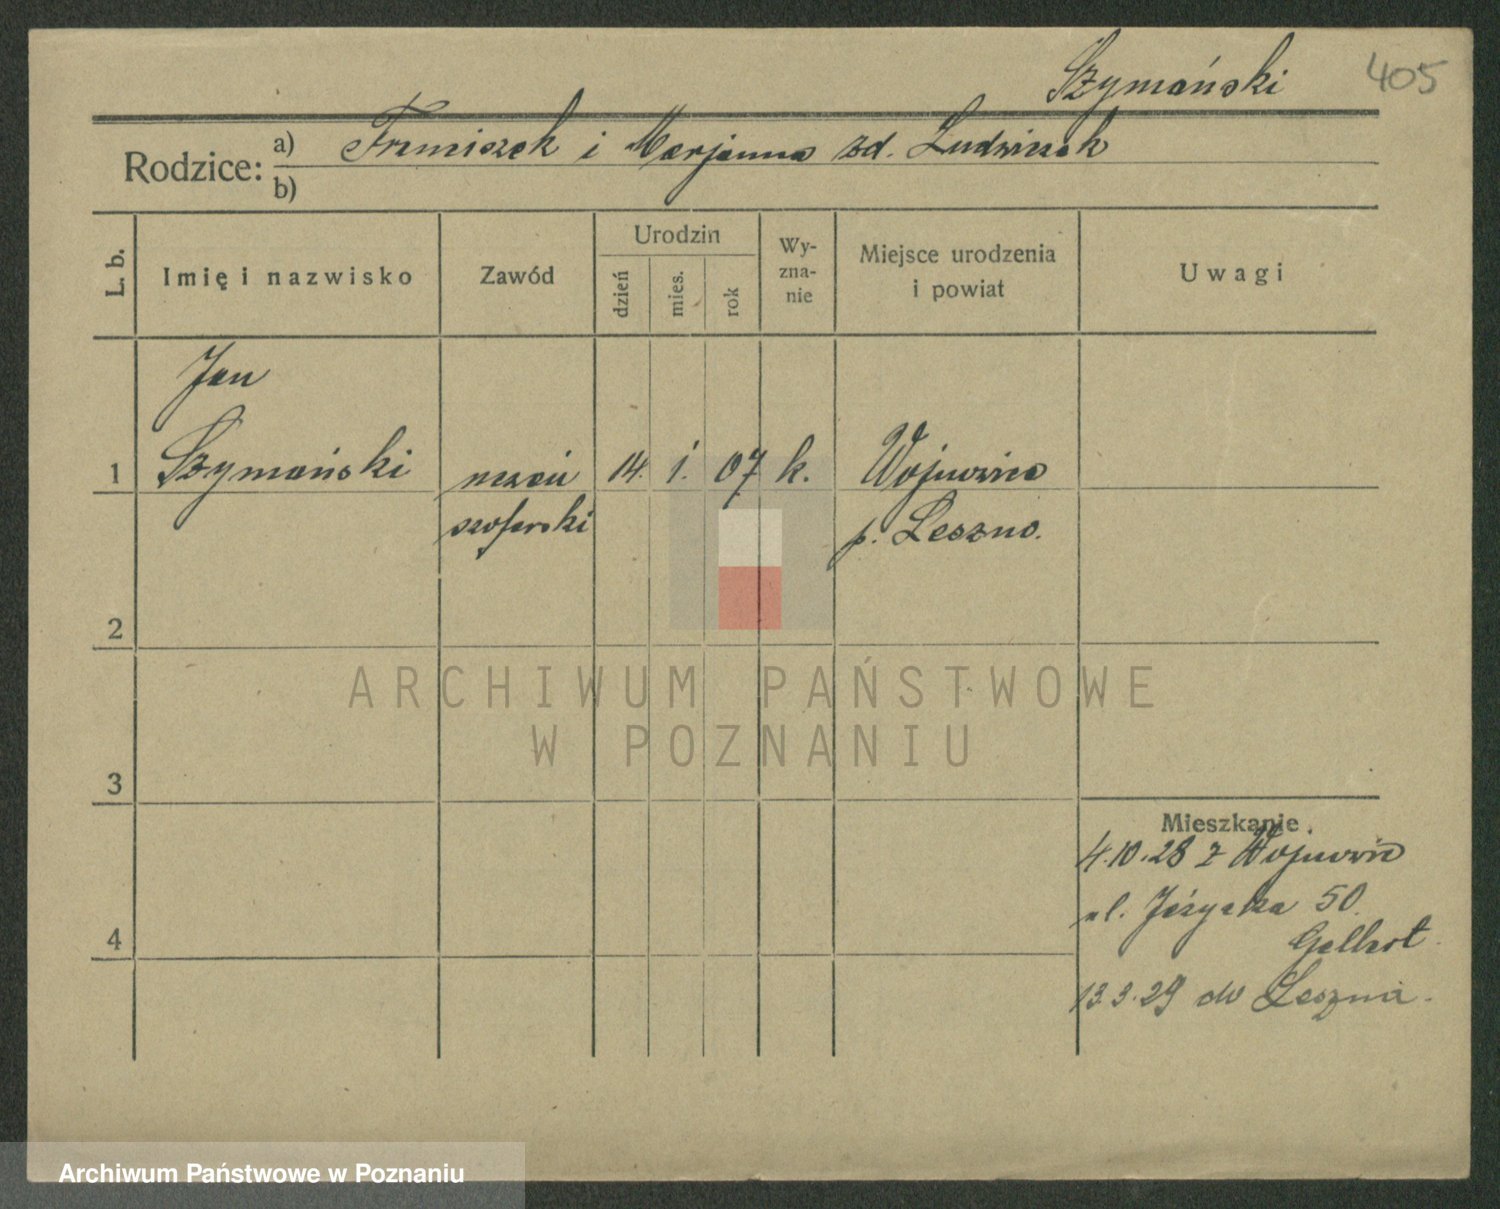 405
Szymański
Rodzice: a) Franciszek i Marjanna zd. Ludwiczak
b)
L. b. Imię i nazwisko Zawód Urodzin dzień mies. rok Wyzna-nie Miejsce urodzenia i powiat Uwagi
Jan
1 Szymański uczeń 14. 1. 07 k. Wojnowice
szoferski p. Leszno.
2
3
Mieszkanie.
4.10.28 z Wojnowic
ul. Jeżycka 50.
4
13.3.29 do Leszna.
ARCHIWUM PAŃSTWOWE
W POZNANIU
Archiwum Państwowe w Poznaniu